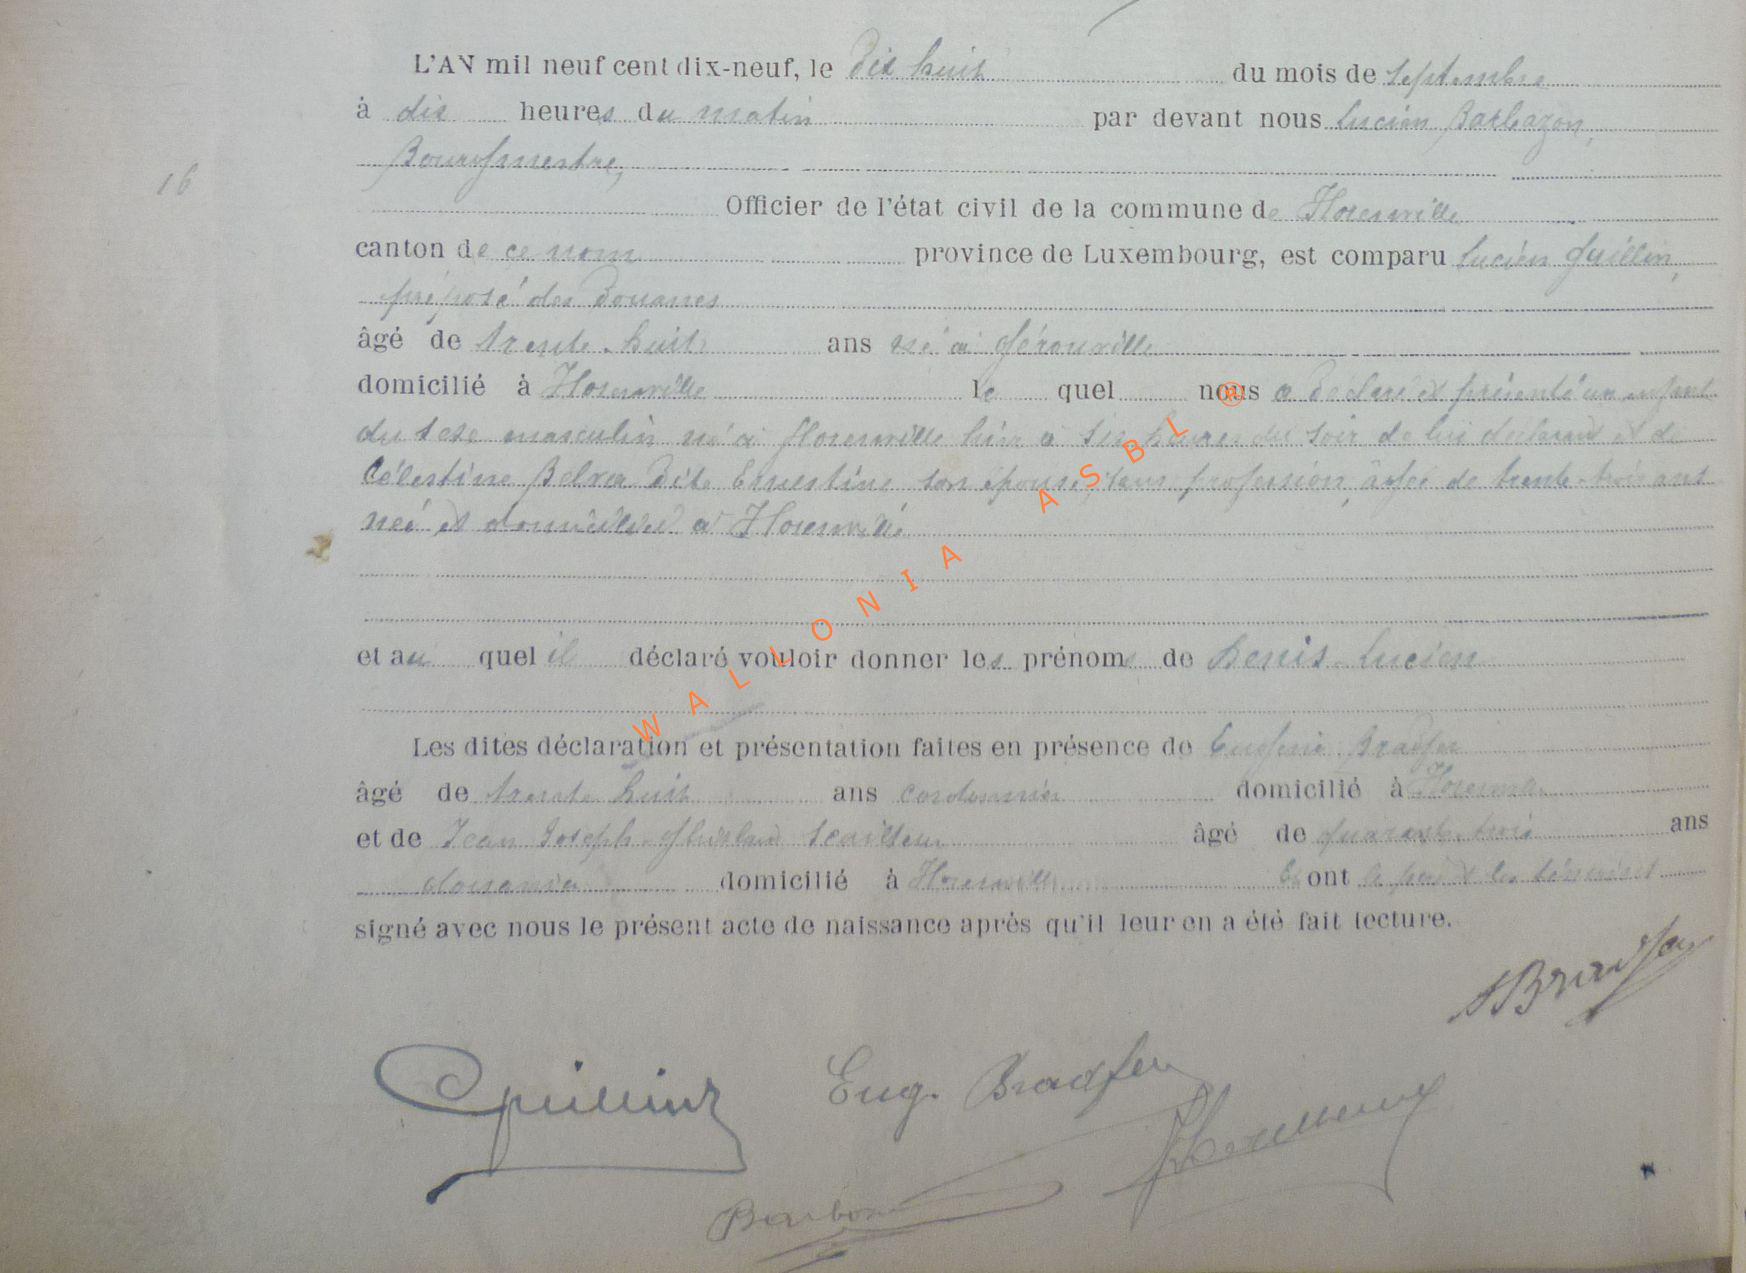 L'AN mil neuf cent dix-neuf, le dix huit du mois de septembre
à dix heures du matin par devant nous Lucien Barbazon,
Bourgmestre,
16
Officier de l'état civil de la commune de Florenville
canton de ce nom province de Luxembourg, est comparu Lucien Guillin,
préposé des Douanes
âgé de trente-huit ans né à Gérouville
domicilié à Florenville le quel nous a déclaré et présenté un enfant
du sexe masculin né à Florenville hier à six heures du soir de lui déclarant et de
Célestine Belva dite Ernestine son épouse, sans profession, âgée de trente-trois ans
née et domiciliée à Florenville
et au quel il déclaré vouloir donner les prénoms de Denis Lucien
Les dites déclaration et présentation faites en présence de Eugène Bradfer
âgé de trente huit ans cordonnier domicilié à Florenville
et de Jean Joseph Ghislain âgé de quarante-trois ans
douanier domicilié à Florenville Et ont le père et les témoins
signé avec nous le présent acte de naissance après qu'il leur en a été fait lecture.
Bradfer
Guillin Eug. Bradfer
WALLONIA ASBL ®